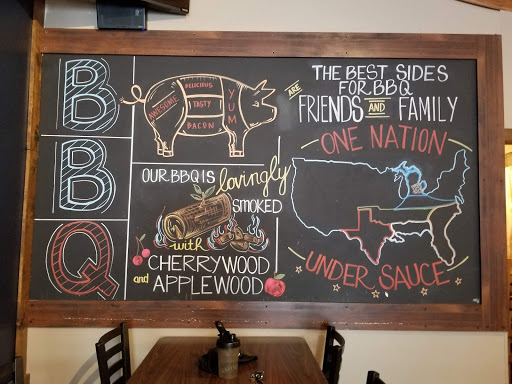 B
B
Q
DELICIOUS
AWESOME
TASTY
YUM
BACON
OUR BBQ IS lovingly
SMOKED
with
CHERRYWOOD
and APPLEWOOD
THE BEST SIDES
FOR BBQ
ARE
FRIENDS AND FAMILY
ONE NATION
UNDER SAUCE